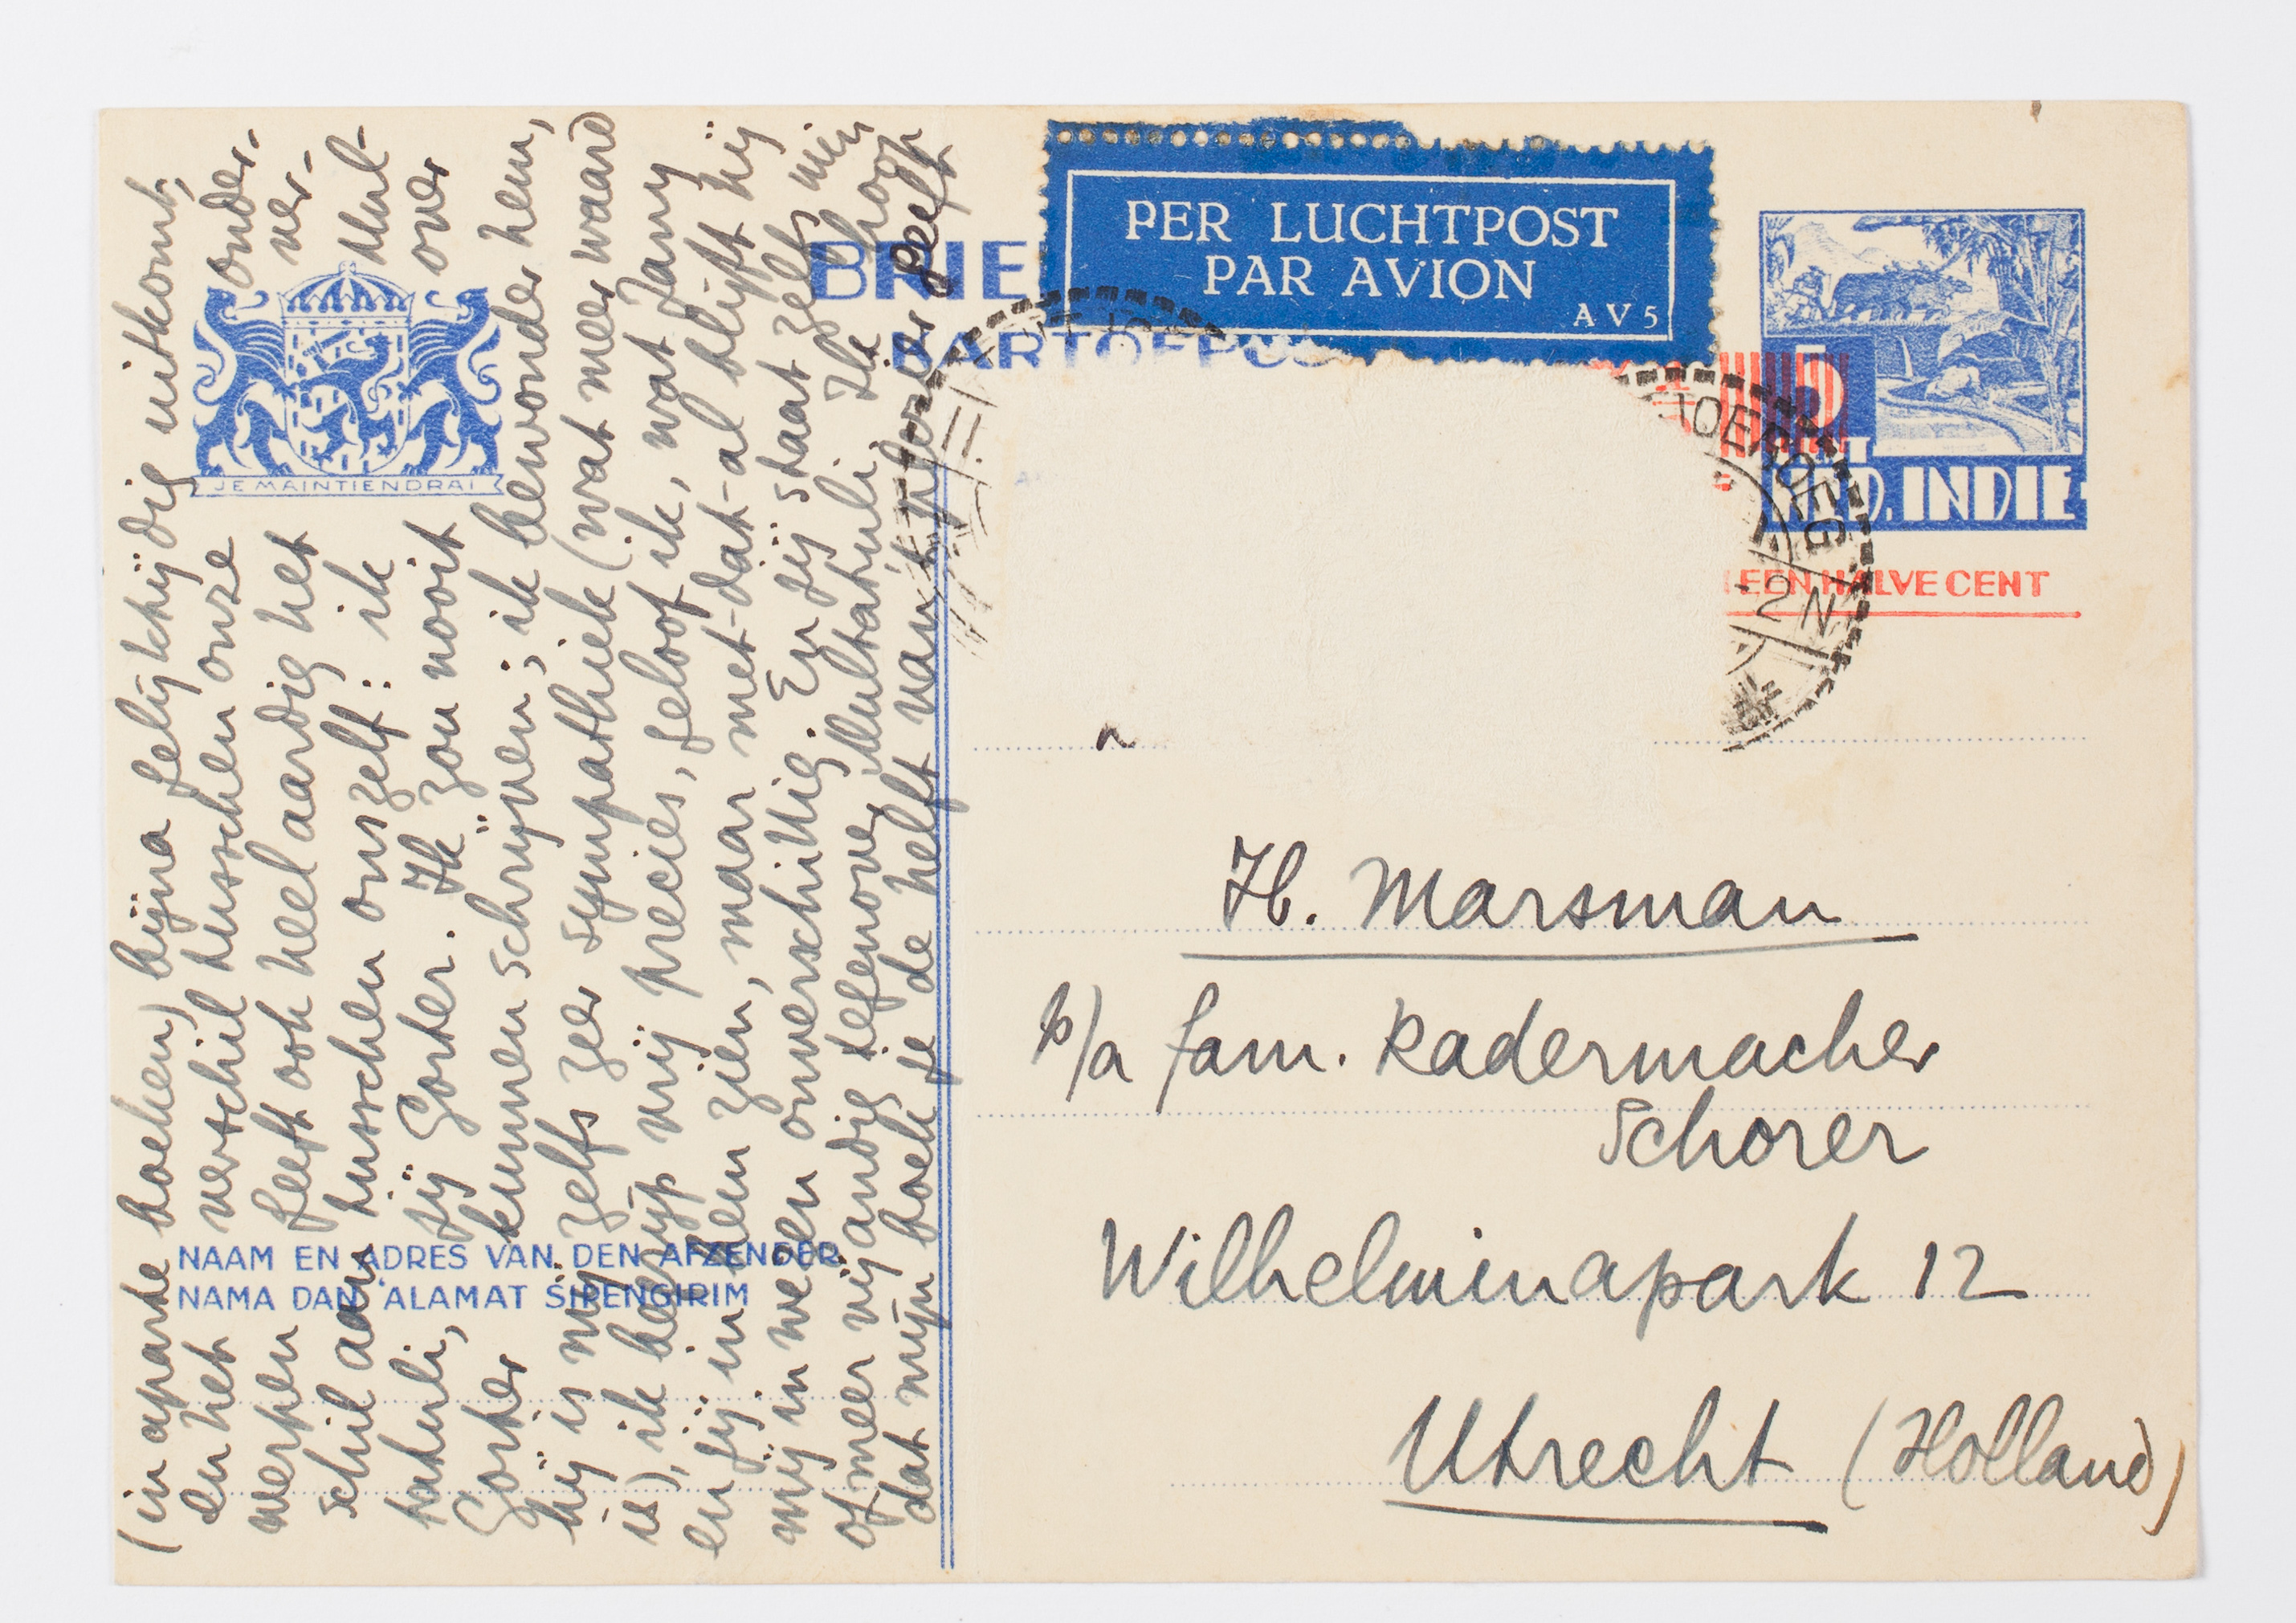 (in aparte boeken) bijna gelijktijdig uitkomt,
en het verschil tusschen onze onder-
werpen geeft ook heel aardig het ver-
schil aan tusschen onszelf: ik Mul-
tatuli, jij Gorter. Ik zou nooit over
Gorter kunnen schrijven; ik bewonder hem,
hij is mij zelfs zeer sympathiek (wat meer waard
is), ik begrijp vrij precies, geloof ik, wat Jany
en jij in hem zien, maar met-dat-al blijft hij
mij in wezen onverschillig. En jij staat zelfs min
of meer vijandig tegenover Multatuli. Ik hoop
dat mijn boek je de helft van 't plezier geeft
JE MAINTIENDRAI
NAAM EN ADRES VAN DEN AFZENDER
NAMA DAN 'ALAMAT SIPENGIRIM
BRIE
KARTOEPOS
PER LUCHTPOST
PAR AVION
AV5
5
NED. INDIE
EEN HALVE CENT
-2 N
H. Marsman
p/a fam. Radermacher
Schorer
Wilhelminapark 12
Utrecht (Holland)